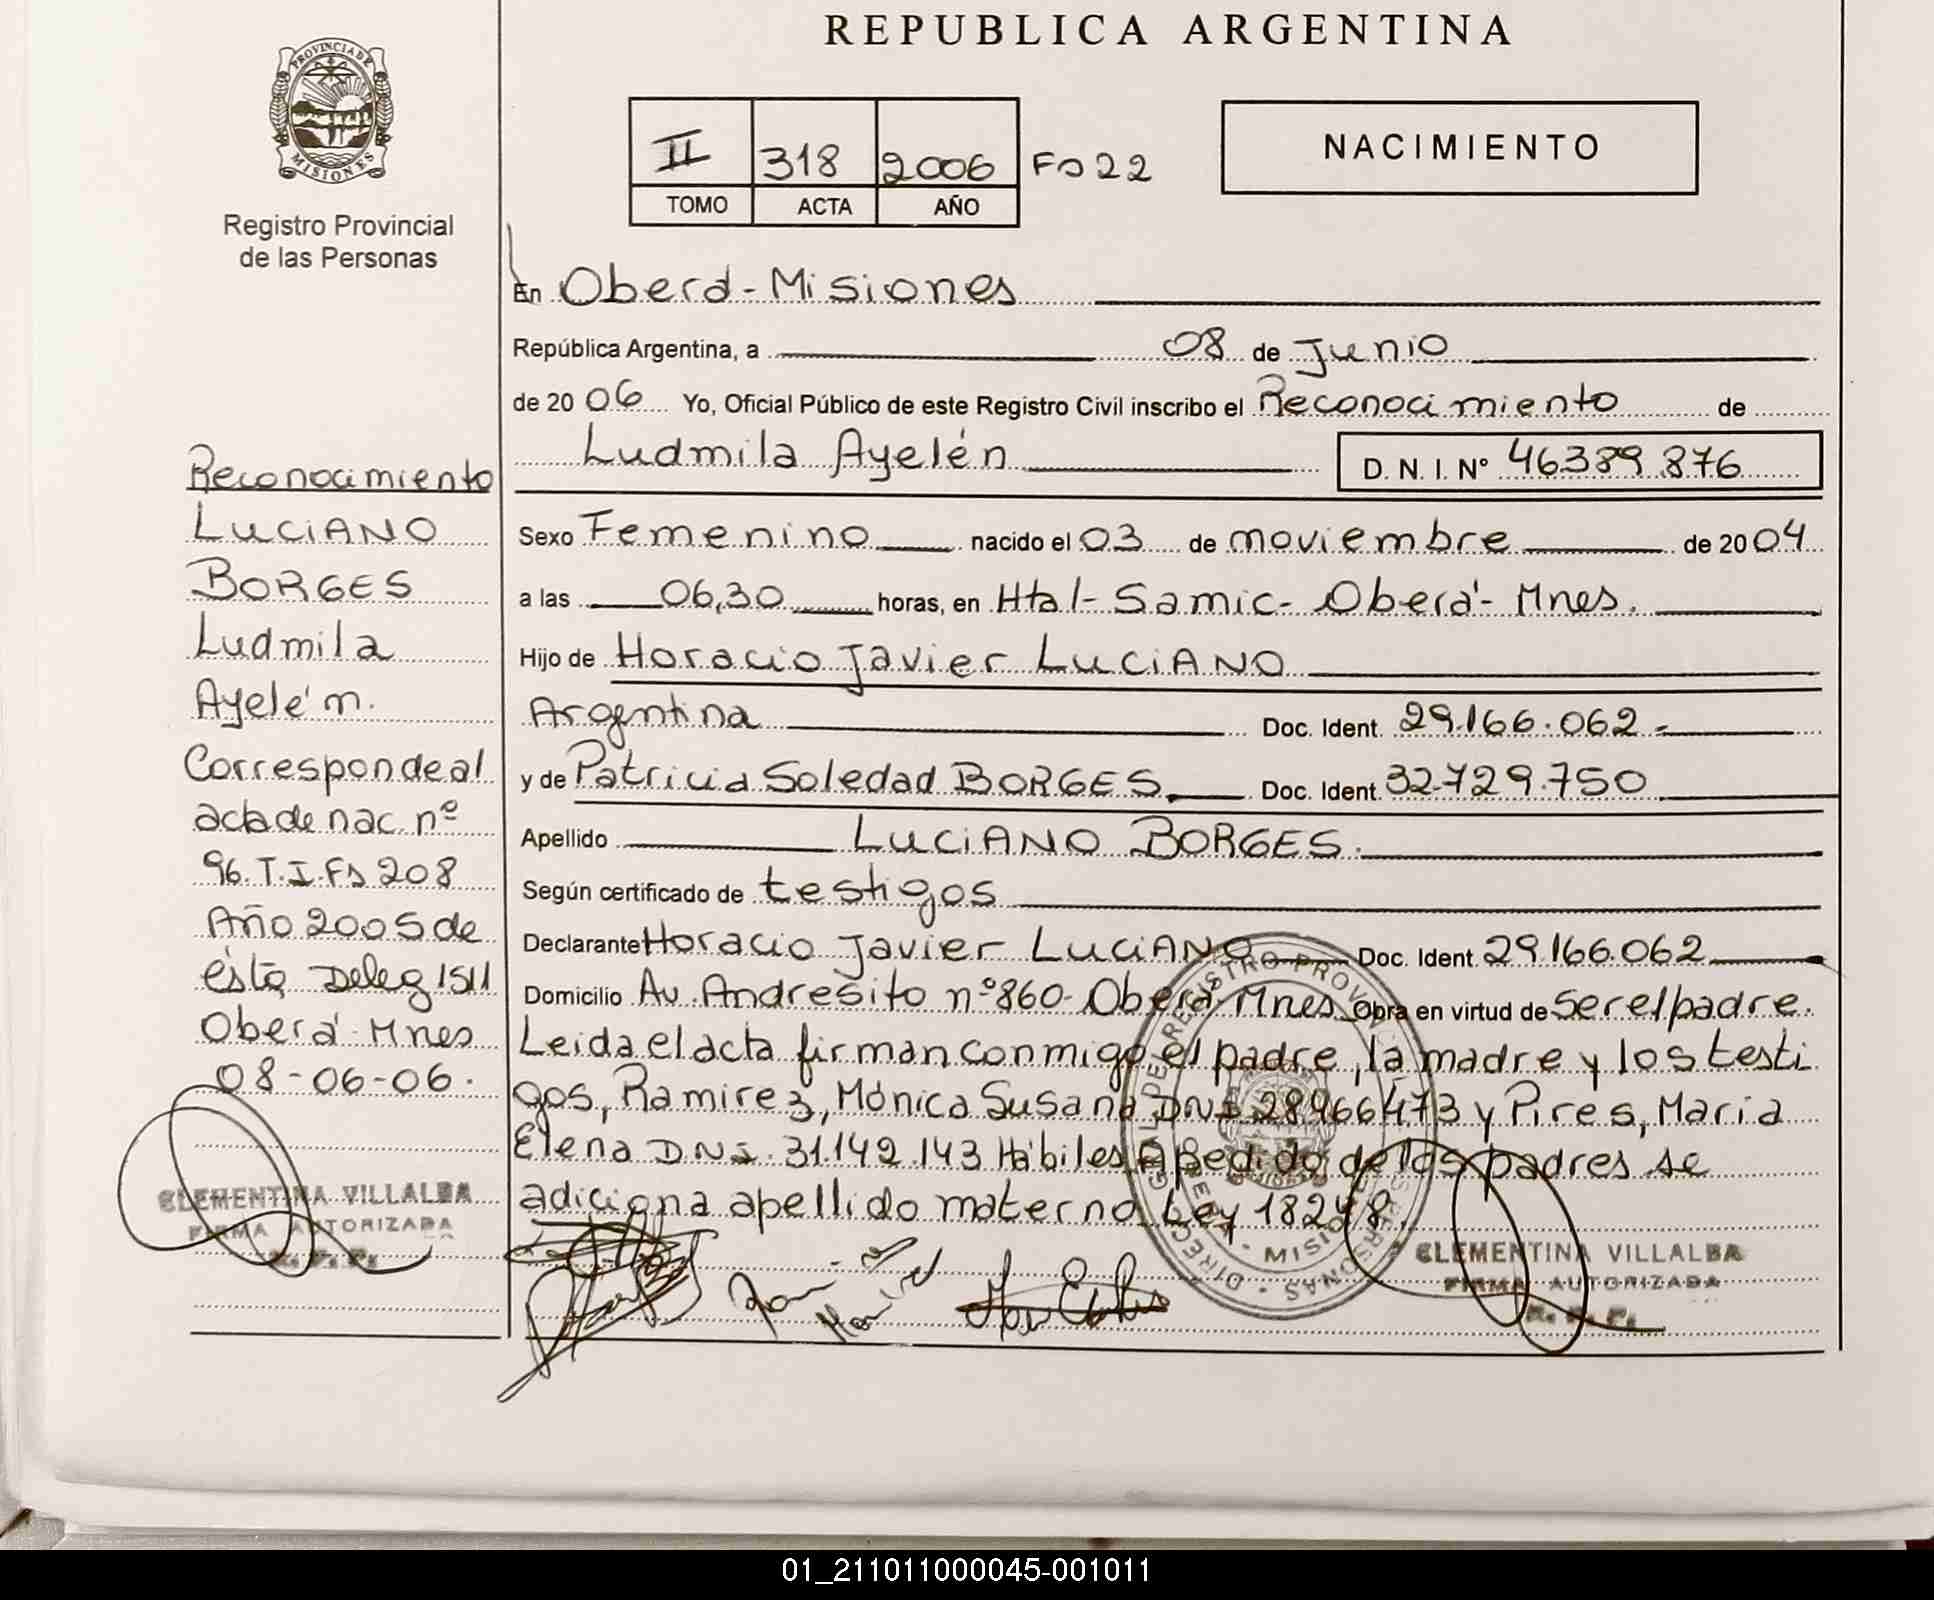 REPUBLICA ARGENTINA
PROVINCIA DE MISIONES
Registro Provincial
de las Personas
II 318 2006 Fo 22
TOMO ACTA AÑO
NACIMIENTO
En Oberá - Misiones
República Argentina, a 08 de Junio
de 2006 Yo, Oficial Público de este Registro Civil inscribo el Reconocimiento de
Ludmila Ayelén D. N. I. N° 46389.876
Sexo Femenino nacido el 03 de noviembre de 2004
a las 06,30 horas, en Htal - Samic - Oberá - Mnes.
Hijo de Horacio Javier LUCIANO
Argentina Doc. Ident. 29.166.062.-
y de Patricia Soledad BORGES. Doc. Ident. 32.729.750
Apellido LUCIANO BORGES.
Según certificado de testigos
Declarante Horacio Javier LUCIANO Doc. Ident. 29.166.062
Domicilio Av. Andresito n° 860 - Oberá Mnes. Obra en virtud de ser el padre.
Leida el acta firman conmigo el padre, la madre y los testi
gos, Ramirez, Mónica Susana DNI 28.966.473 y Pires, Maria
Elena DNI. 31.142.143 Hábiles. A pedido de los padres se
adiciona apellido materno Ley 18248.
CLEMENTINA VILLALBA
FIRMA AUTORIZADA
R. P. P.
Reconocimiento
LUCIANO
BORGES
Ludmila
Ayelén.
Corresponde al
acta de nac. n°
96. T. I. Fo 208
Año 2005 de
ésta Deleg 1511
Oberá - Mnes
08-06-06.
CLEMENTINA VILLALBA
FIRMA AUTORIZADA
R. P. P.
01_211011000045-001011